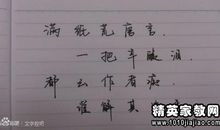 满纸荒唐言
一把辛酸泪
都云作者痴
谁解其
精英家教网
www.1010jiajiao.com